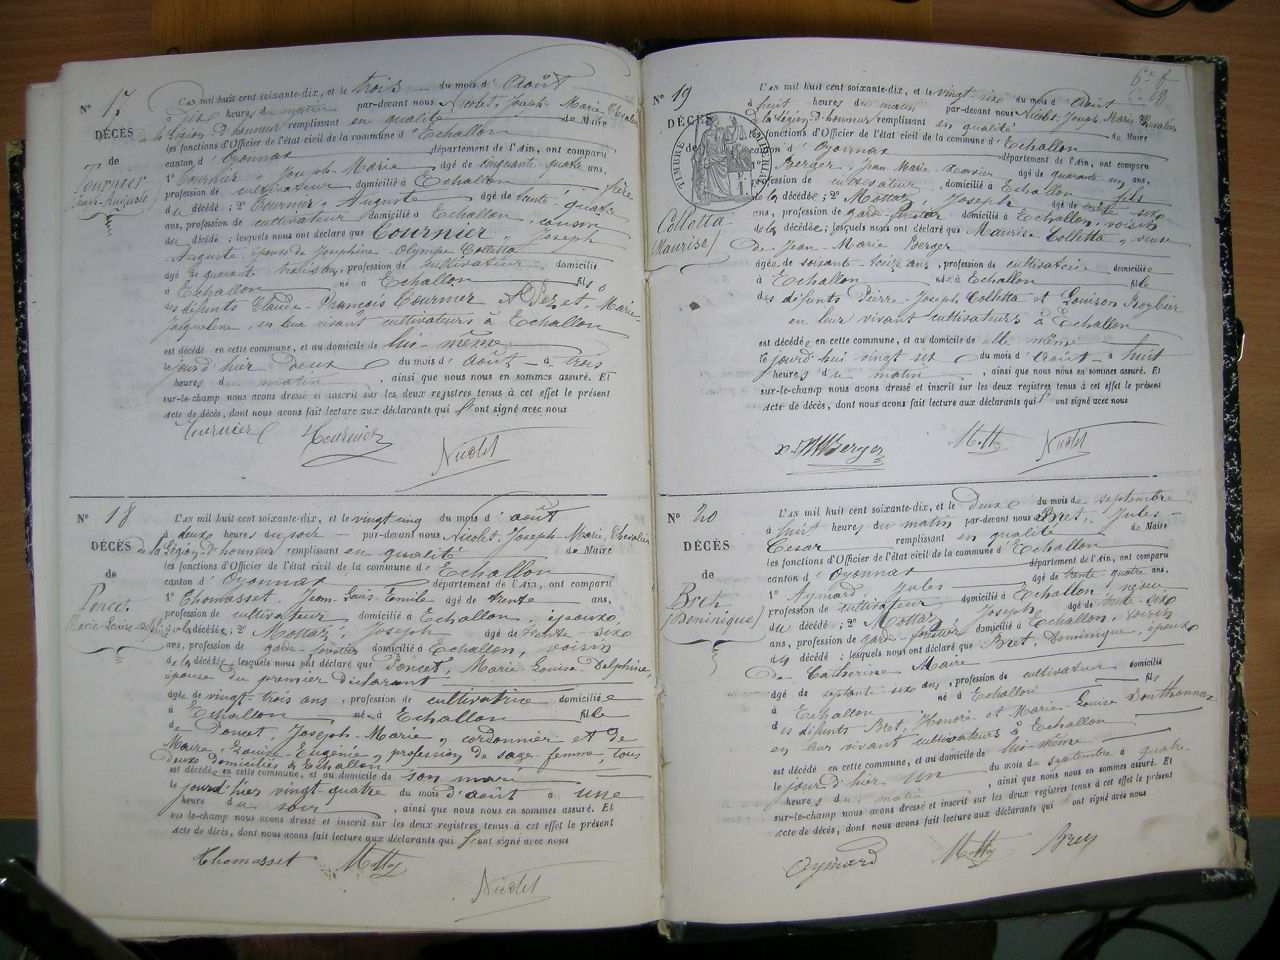 N° 17
DÉCÈS
de
Tournier
Jean-Auguste
L'AN mil huit cent soixante-dix, et le trois du mois d'Août
à six heures du matin par-devant nous Nicolet, Joseph Marie, Chevalier
de la Légion d'honneur remplissant en qualité de Maire
les fonctions d'Officier de l'état civil de la commune d'Echallon
canton d'Oyonnax département de l'Ain, ont comparu
1° Tournier, Joseph Marie âgé de cinquante quatre ans,
profession de cultivateur domicilié à Echallon frère
du décédé; 2° Tournier, Auguste âgé de trente-quatre
ans, profession de cultivateur domicilié à Echallon, cousin
du décédé; lesquels nous ont déclaré que Tournier, Joseph
Auguste, époux de Joséphine Olympe Colletta
âgé de quarante trois ans, profession de cultivateur domicilié
à Echallon né à Echallon fils
des défunts Claude-François Tournier et Marie
Jacqueline, en leur vivant cultivateurs à Echallon
est décédé en cette commune, et au domicile de lui-même
le jourd'hier deux du mois d'Août à trois
heures du matin, ainsi que nous nous en sommes assuré. Et
sur-le-champ nous avons dressé et inscrit sur les deux registres tenus à cet effet le présent
acte de décès, dont nous avons fait lecture aux déclarants qui l'ont signé avec nous
Tournier Tournier
Nicolet
N° 18
DÉCÈS
de
Poncet
Marie-Louise-Delphine
L'AN mil huit cent soixante-dix, et le vingt cinq du mois d'août
à deux heures du soir par-devant nous Nicolet, Joseph Marie, Chevalier
de la Légion d'honneur remplissant en qualité de Maire
les fonctions d'Officier de l'état civil de la commune d'Echallon
canton d'Oyonnax département de l'Ain, ont comparu
1° Thomasset, Jean-Louis Emile âgé de trente ans,
profession de cultivateur domicilié à Echallon, époux,
de la décédée; 2° Mottaz, Joseph âgé de trente-six
ans, profession de garde-forestier domicilié à Echallon, voisin
de la décédée; lesquels nous ont déclaré que Poncet, Marie Louise Delphine,
épouse du premier déclarant
âgée de vingt-trois ans, profession de cultivatrice domiciliée
à Echallon née à Echallon fille
de Poncet, Joseph-Marie, cordonnier et de
Maire, Louise-Eugénie, profession de sage femme, tous
deux domiciliés à Echallon
est décédée en cette commune, et au domicile de son mari
le jourd'hier vingt quatre du mois d'août à une
heure du soir, ainsi que nous nous en sommes assuré. Et
sur le-champ nous avons dressé et inscrit sur les deux registres tenus à cet effet le présent
acte de décès, dont nous avons fait lecture aux déclarants qui l'ont signé avec nous
Thomasset Mottaz
Nicolet
N° 19
DÉCÈS
de
TIMBRE IMPÉRIAL
Colletta
(Maurise)
L'AN mil huit cent soixante-dix, et le vingt six du mois d'Août
à huit heures du matin par-devant nous Nicolet, Joseph Marie, Chevalier
de la Légion d'honneur remplissant en qualité de Maire
les fonctions d'Officier de l'état civil de la commune d'Echallon
canton d'Oyonnax département de l'Ain, ont comparu
1° Berger, Jean Marie âgé de quarante un ans,
profession de cultivateur, domicilié à Echallon fils
de la décédée; 2° Mottaz, Joseph âgé de trente six
ans, profession de garde-forestier domicilié à Echallon, voisin
de la décédée; lesquels nous ont déclaré que Maurise Colletta, veuve
de Jean-Marie Berger
âgée de soixante-seize ans, profession de cultivatrice domiciliée
à Echallon née à Echallon fille
des défunts Pierre-Joseph Colletta et Louison
en leur vivant cultivateurs à Echallon
est décédée en cette commune, et au domicile de elle même
le jourd'hui vingt six du mois d'Août à huit
heures du matin, ainsi que nous nous en sommes assuré. Et
sur-le-champ nous avons dressé et inscrit sur les deux registres tenus à cet effet le présent
acte de décès, dont nous avons fait lecture aux déclarants qui l'ont signé avec nous
Berger Mottaz Nicolet
N° 20
DÉCÈS
de
Bret
(Dominique)
L'AN mil huit cent soixante-dix, et le deux du mois de septembre
à huit heures du matin par-devant nous Bret, Jules
Cesar remplissant en qualité de Maire
les fonctions d'Officier de l'état civil de la commune d'Echallon
canton d'Oyonnax département de l'Ain, ont comparu
1° Aymard, Jules âgé de trente quatre ans,
profession de cultivateur domicilié à Echallon, neveu
du décédé; 2° Mottaz, Joseph âgé de trente-six
ans, profession de garde-forestier domicilié à Echallon, voisin
du décédé; lesquels nous ont déclaré que Bret, Dominique, époux
de Catherine Maire
âgé de septante-six ans, profession de cultivateur domicilié
à Echallon né à Echallon fils
des défunts Bret, Honoré et Marie-Louise Donthonnax
en leur vivant cultivateurs à Echallon
est décédé en cette commune, et au domicile de lui-même
le jourd'hier un du mois de septembre à quatre
heures du matin, ainsi que nous nous en sommes assuré. Et
sur-le-champ nous avons dressé et inscrit sur les deux registres tenus à cet effet le présent
acte de décès, dont nous avons fait lecture aux déclarants qui l'ont signé avec nous
Aymard Mottaz Bret